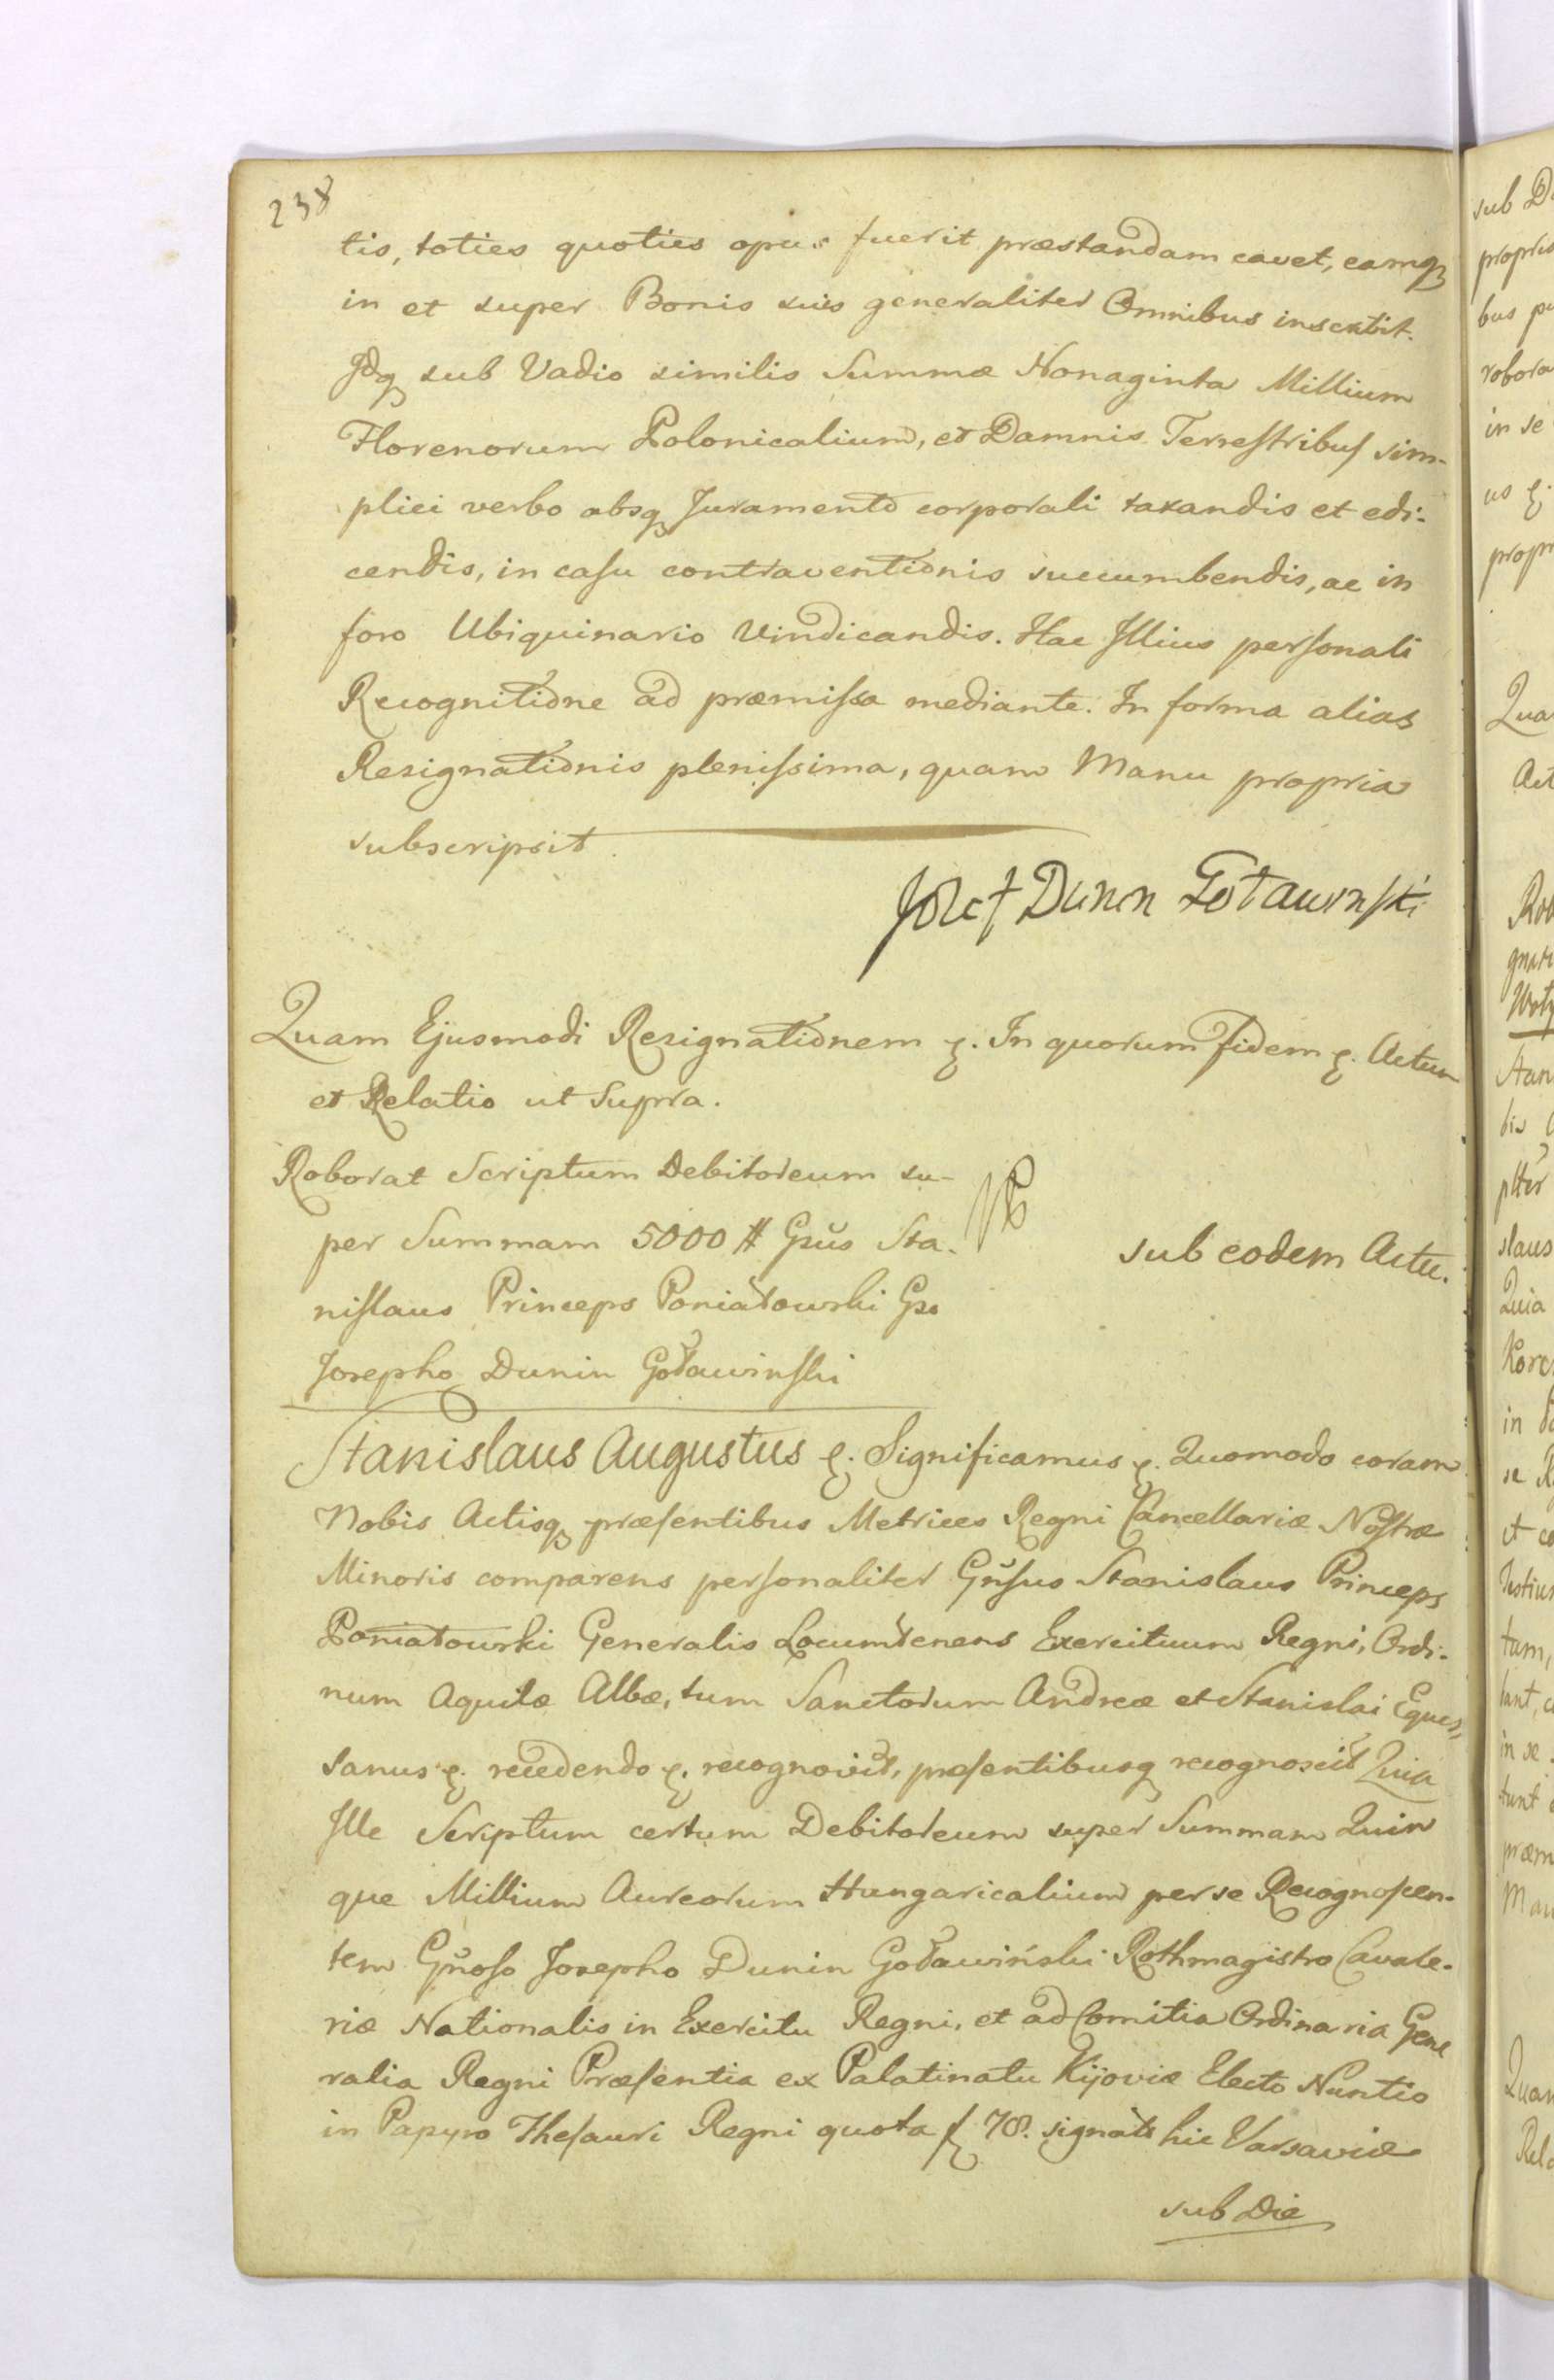 238
tis, toties quoties opus fuerit præstandam cavet, eamq
in et super Bonis suis generaliter Omnibus inscribit.
Jdq sub Vadio similis Summæ Nonaginta Millium
Florenorum Polonicalium, et Damnis Terrestribus sim-
plici verbo absq Juramento corporali taxandis et edi-
cendis, in casu contraventionis succumbendis, ac in
foro Ubiquinario Vindicandis. Hac Jllius personali
Recognitione ad præmissa mediante. In forma alias
Resignationis plenissima, quam Manu propria
subscripsit
Jozef Dunin Gotawinski
Quam Ejusmodi Resignationem &. In quorum Fidem &. Actum
et Relatio ut Supra.
Roborat Scriptum Debitoreum su-
per Summam 5000 # Gsŭs Sta-
nislaus Princeps Poniatowski Gso
Josepho Dunin Goławinski
sub eodem Actu.
Stanislaus Augustus &. Significamus &. Quomodo coram
Nobis Actisq præsentibus Metrices Regni Cancellariæ Nostræ
Minoris comparens personaliter Gn̆sus Stanislaus Princeps
Poniatowski Generalis Locumtenens Exercituum Regni, Ordi-
num Aquilæ Albæ, tum Sanctorum Andreæ et Stanislai Eques,
sanus &. recedendo &. recognovit, præsentibusq recognoscit Quia
Jlle Scriptum certum Debitoreum super Summam Quin
que Millium Aureorum Hungaricalium per se Recognoscen-
tem Gn̆oso Josepho Dunin Goławiński Rothmagistro Cavale-
riæ Nationalis in Exercitu Regni, et ad Comitia Ordinaria Gene
ralia Regni Præsentia ex Palatinatu Kijoviæ Electo Nuntio
in Papyro Thesauri Regni quota f 78. signato hic Varsaviæ
sub Die
sub D
propri
bus p
robora
in se
us &.
propr
Qua
Act
Rob
Stan
slaus
Quia
Kor
in
et co
tum,
in se
præm
Man
Quam
Rela